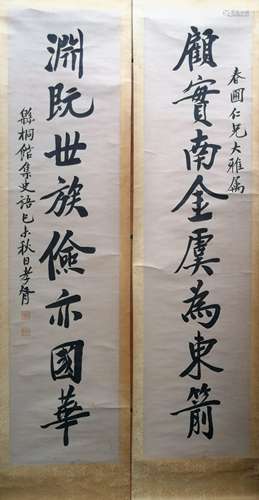 春圃仁兄大雅属
顧實南金虞為東箭
淵既世族儉亦國華
縣桐館集史語己未秋日孝胥